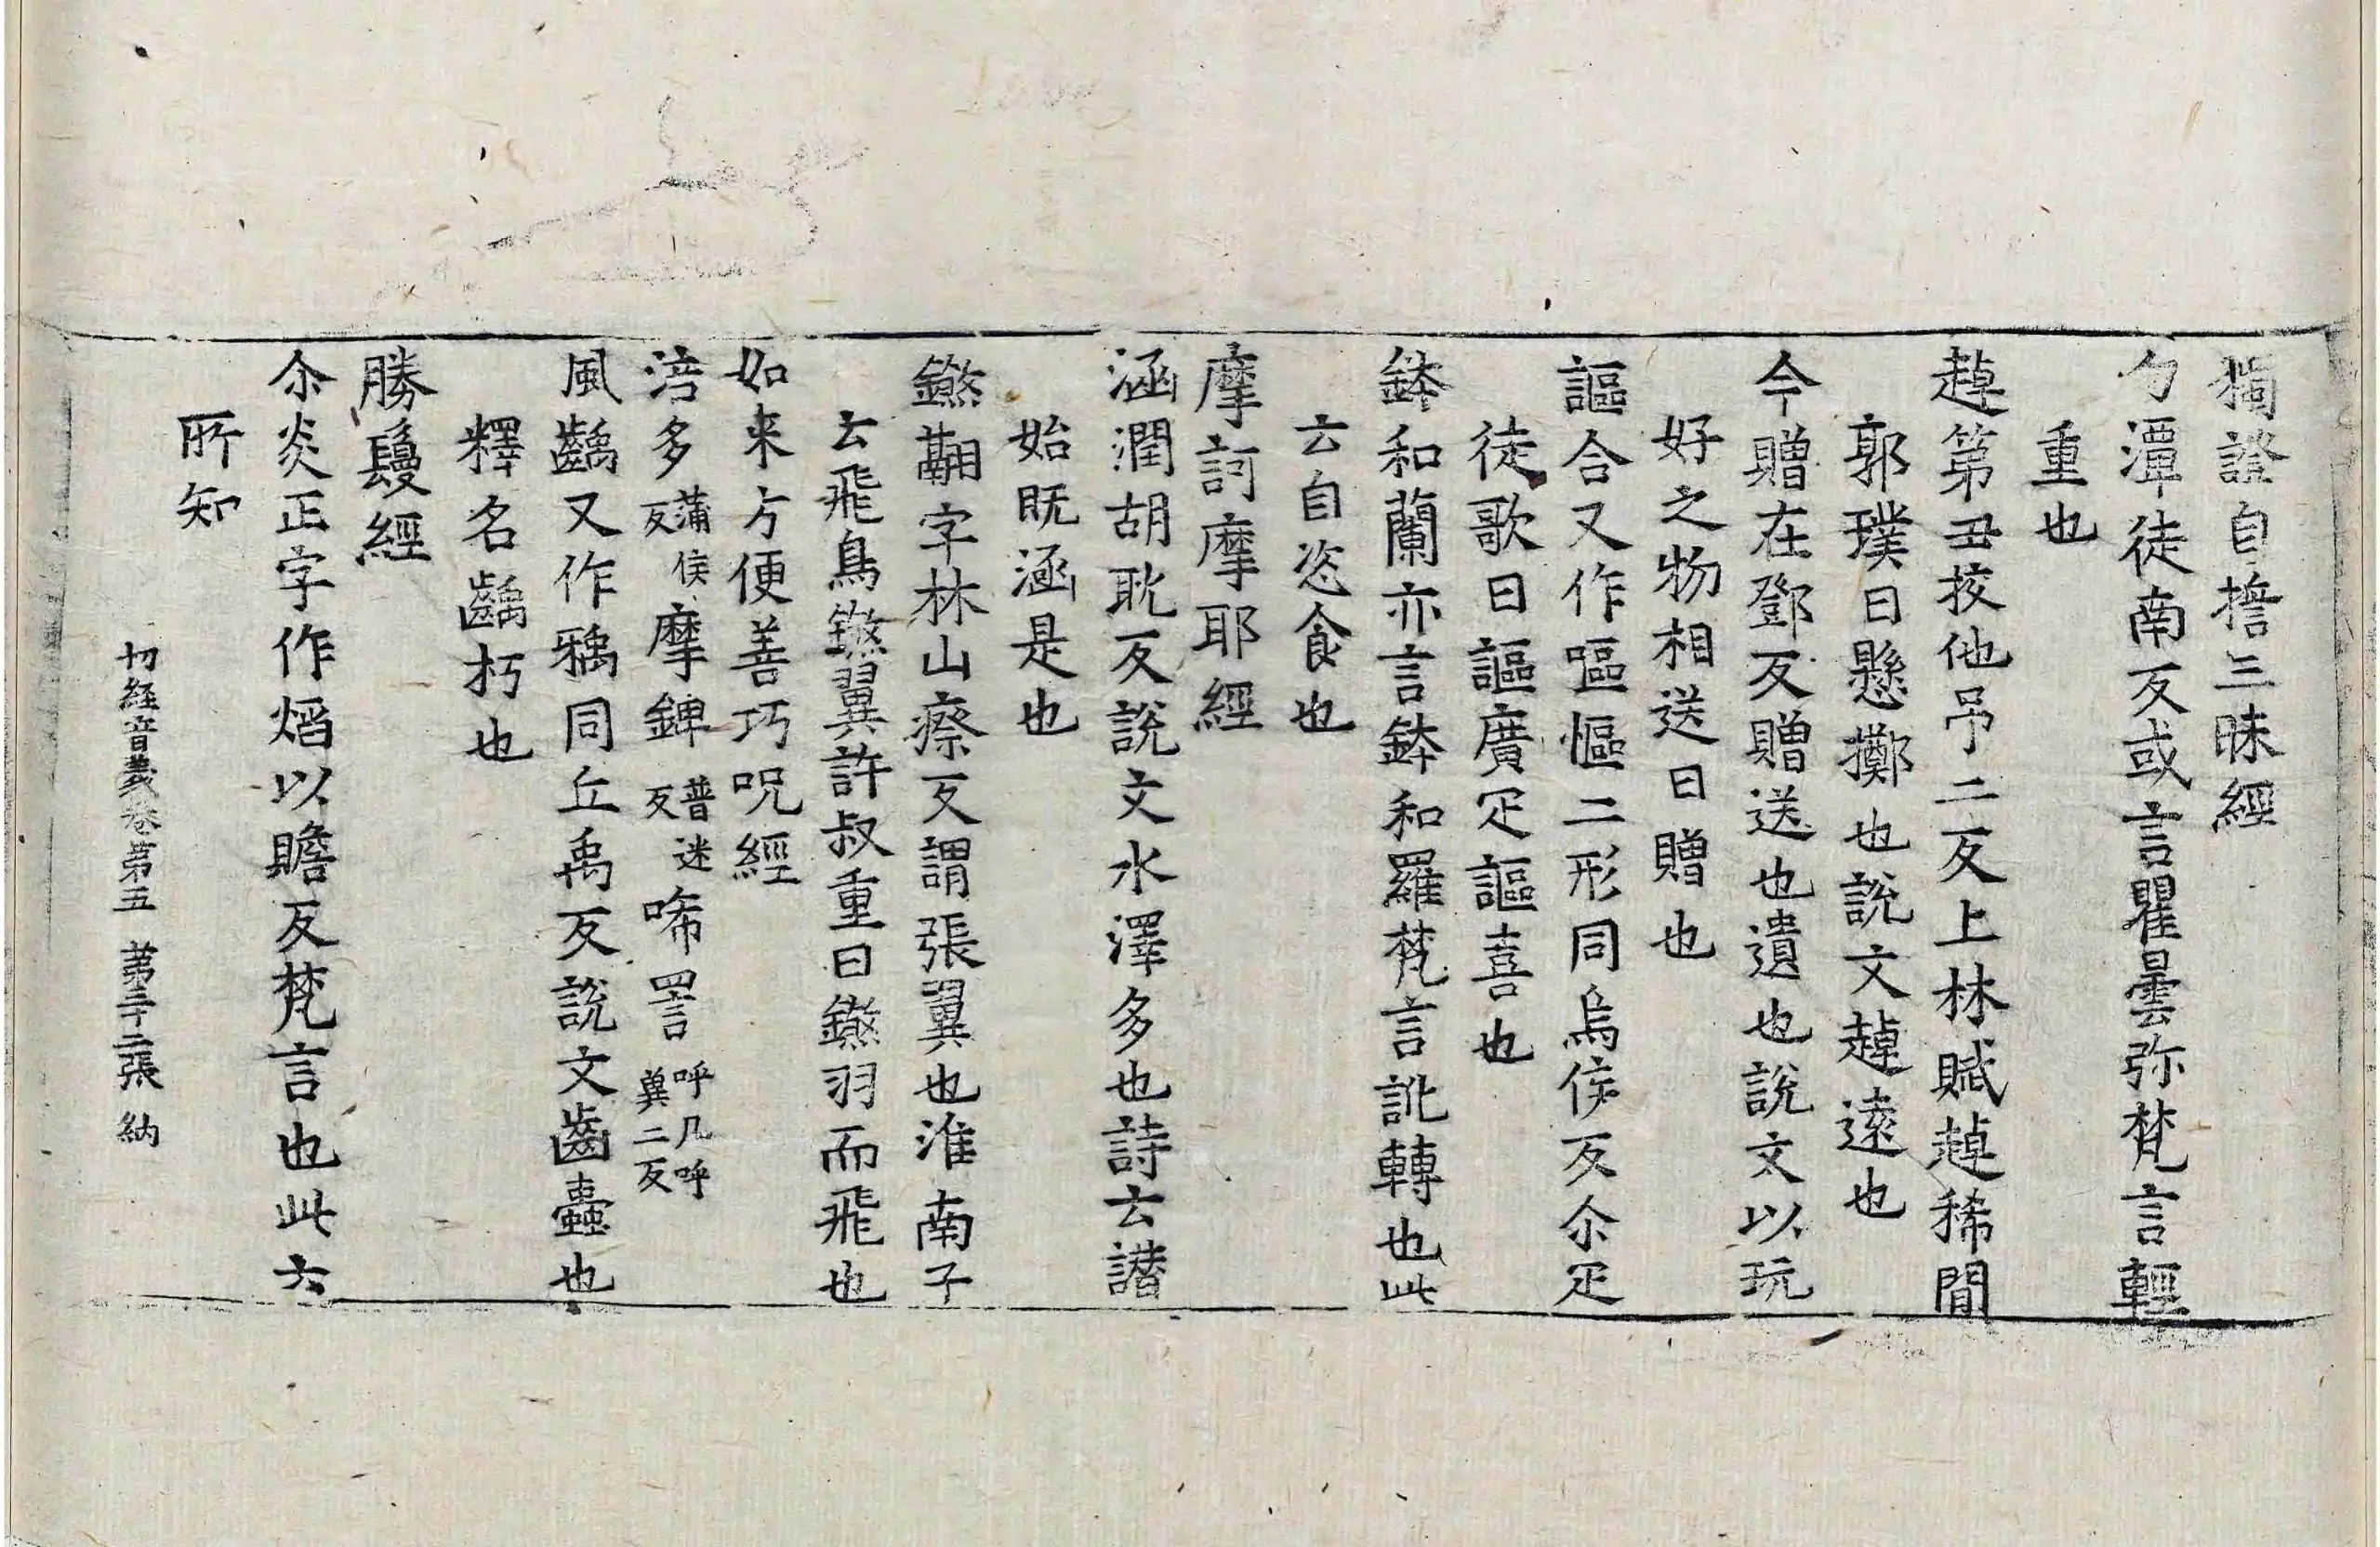 獨證自擔三昧經
勺潭徒南反或言瞿曇弥梵言輕
重也
趠第丑挍他弔二反上林賦趠稀閒
郭璞曰懸擲也說文趠遠也
今贈在鄧反贈送也遺也說文以玩
好之物相送曰贈也
謳合又作嘔慪二形同烏侯反尒疋
徒歌曰謳廣疋謳喜也
鉢和蘭亦言鉢和羅梵言訛轉也此
云自恣食也
摩訶摩耶經
涵潤胡耽反說文水澤多也詩云譖
始既涵是也
鎩翮字林山瘵反謂張翼也淮南子
云飛鳥鎩翼許叔重曰鎩羽而飛也
如来方便善巧呪經
涪多蒲侯反摩錍普迷反唏詈呼几呼異二反
風齲又作䶚同丘禹反說文齒蠹也
釋名齲朽也
勝鬘經
尒炎正字作熖以贍反梵言也此云
所知
切經音義卷第五 第二十二張 納